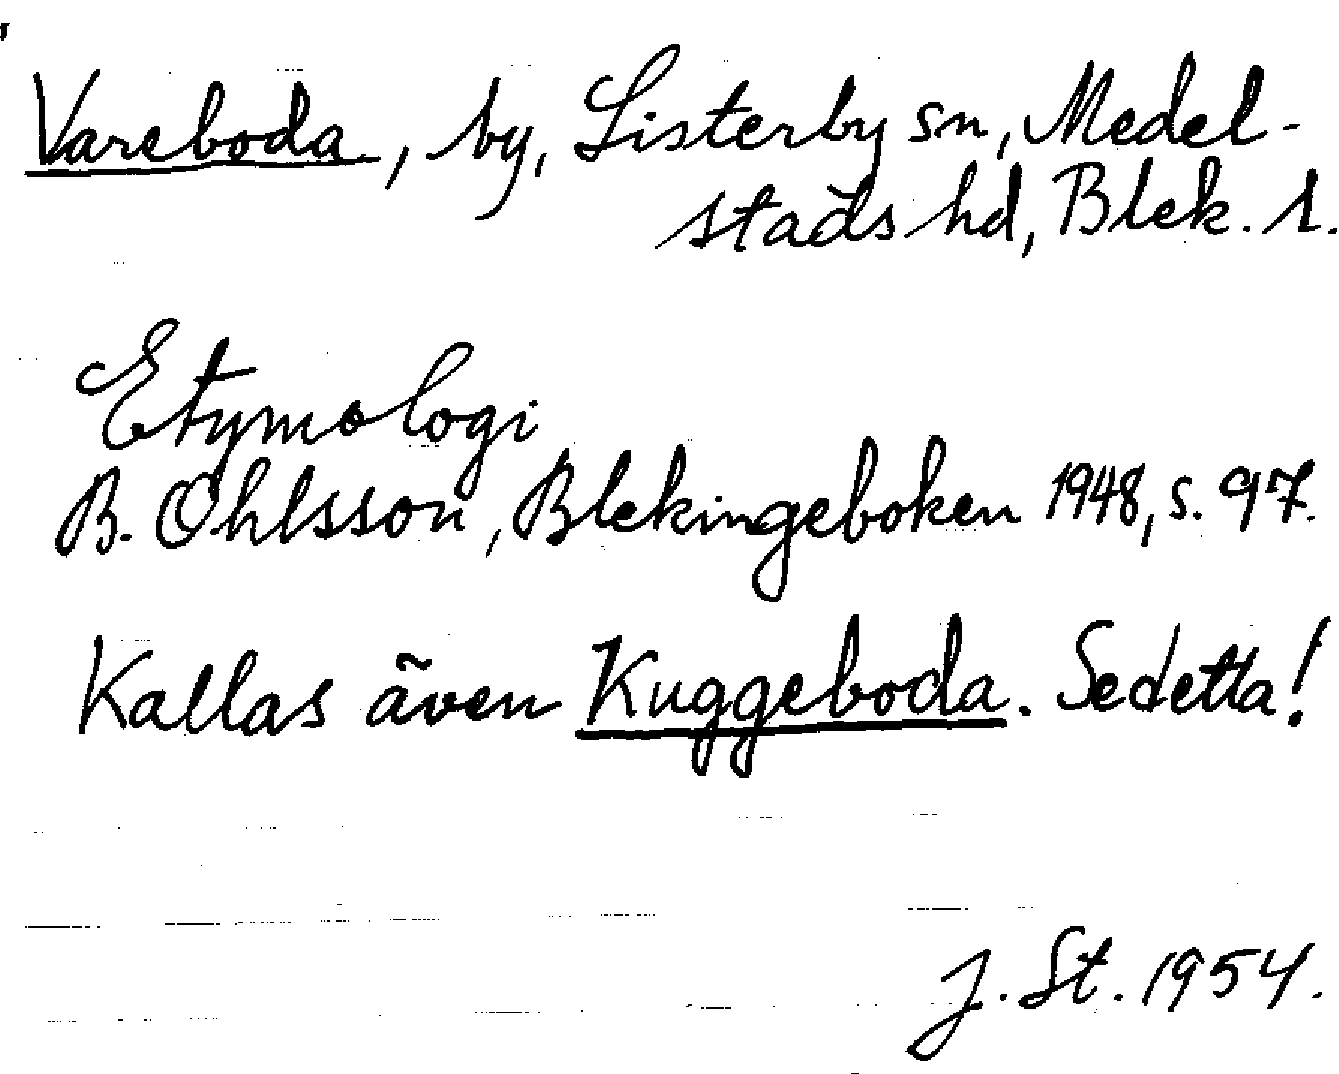 Vareboda, by, Listerby sn, Medel-
stads hd, Blek. l.
Etymologi
B. Ohlsson, Blekingeboken 1948, s. 97.
Kallas även Kuggeboda. Se detta!
J. St. 1954.